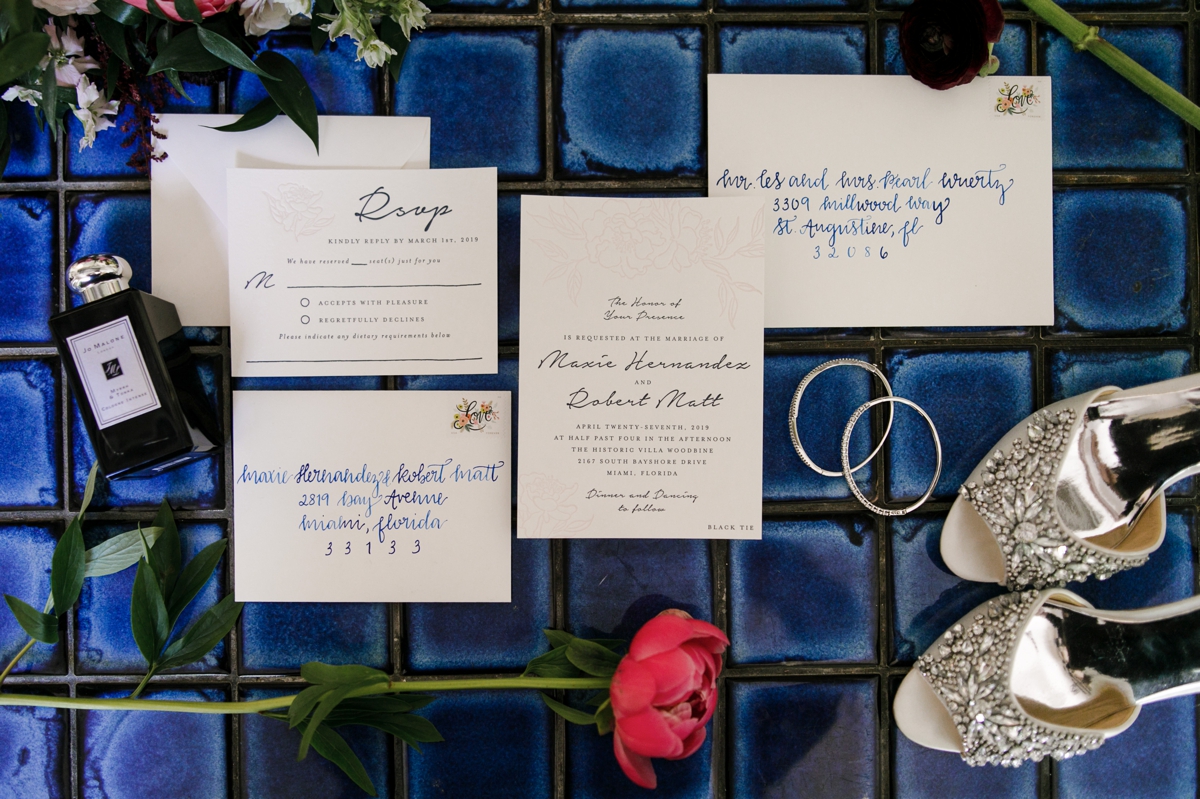 Rsvp
KINDLY REPLY BY MARCH 1ST, 2019
We have reserved ___ seat(s) just for you
M
ACCEPTS WITH PLEASURE
REGRETFULLY DECLINES
Please indicate any dietary requirements below
JO MALONE
LONDON
MYRRH
& TONKA
COLOGNE INTENSE
Love
Maxie Hernandez & Robert Matt
2819 Bay Avenue
Miami, Florida
33133
The Honor of
Your Presence
IS REQUESTED AT THE MARRIAGE OF
Maxie Hernandez
AND
Robert Matt
APRIL TWENTY-SEVENTH, 2019
AT HALF PAST FOUR IN THE AFTERNOON
THE HISTORIC VILLA WOODBINE
2167 SOUTH BAYSHORE DRIVE
MIAMI, FLORIDA
Dinner and Dancing
to follow
BLACK TIE
Love
Mr. Les and Mrs. Pearl Wuertz
3309 Millwood Way
St. Augustine, Fl
32086